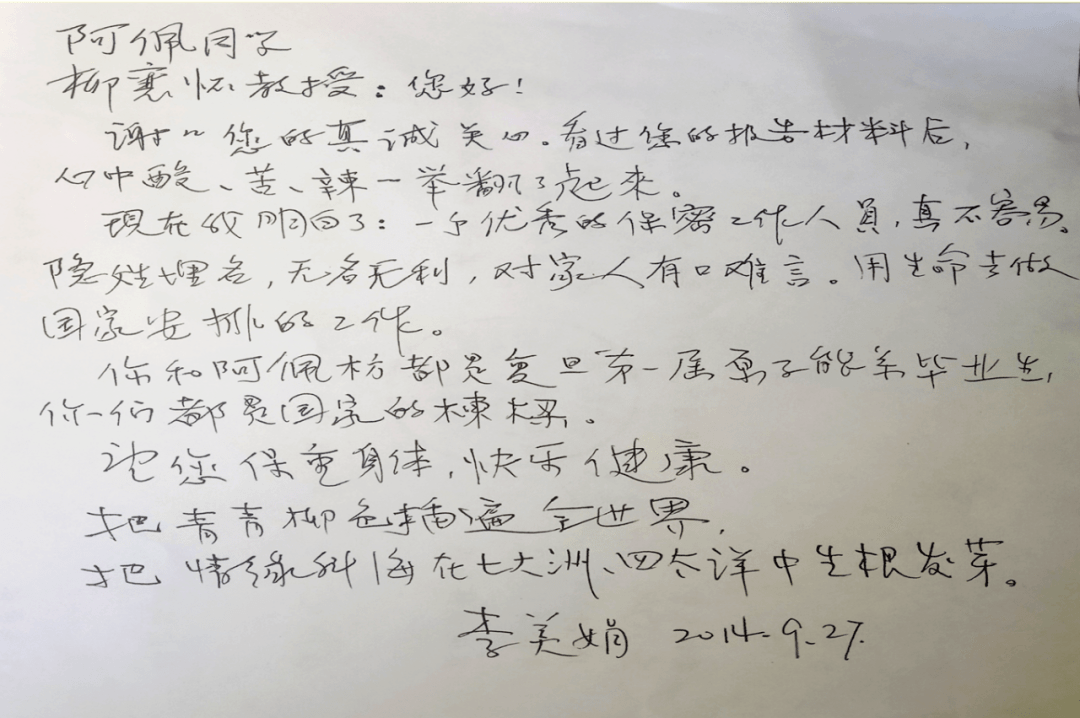 阿佩同学
柳襄怀教授：您好！
谢谢您的真诚关心。看过您的报告材料后，
心中酸、苦、辣一举翻了起来。
现在我明白了：一个优秀的保密工作人員，真不容易。
隐姓埋名，无名无利，对家人有口难言。用生命去做
国家安排的工作。
你和阿佩标都是复旦第一届原子能系毕业生，
你们都是国家的棟樑。
请您保重身体，快乐健康。
把青青柳色播遍全世界，
把情缘科海在七大洲、四大洋中生根发芽。
李美娟 2014.9.27.